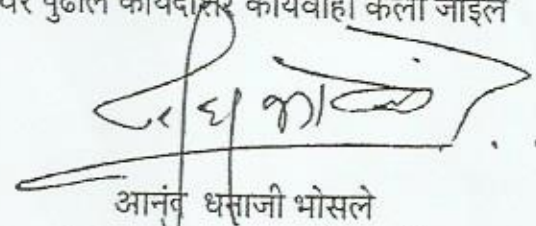 वर पुढील कायदेशीर कार्यवाही केली जाईल
आनंद धनाजी भोसले